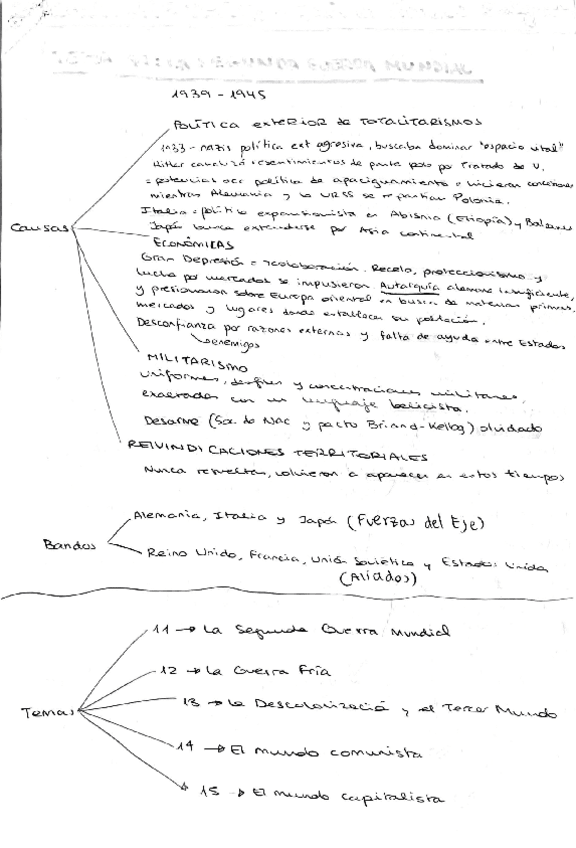 1939 - 1945
POLÍTICA exterior de TOTALITARISMOS
1933 - nazis política ext agresiva, buscaba dominar "espacio vital"
Hitler canalizó resentimientos de parte pob por Tratado de V.
potencias occ política de apaciguamiento e hicieron concesiones
mientras Alemania y la URSS se repartían Polonia.
Italia = política expansionista en Abisinia (Etiopía) y Balcanes
Japón busca extenderse por Asia continental
Causas
ECONÓMICAS
Gran Depresión = colaboración. Recelo, proteccionismo y
lucha por mercados se impusieron. Autarquía alemana insuficiente,
y presionaron sobre Europa oriental en busca de materias primas,
mercados y lugares donde establecer su población.
Desconfianza por razones externas y falta de ayuda entre Estados
enemigos
MILITARISMO
Uniformes, desfiles y concentraciones militares,
exaltados con un lenguaje belicista.
Desarme (Soc. de Nac y pacto Briand-Kellog) olvidado
REIVINDICACIONES TERRITORIALES
Nunca resueltas, volvieron a aparecer en estos tiempos
Alemania, Italia y Japón (Fuerzas del Eje)
Bandos
Reino Unido, Francia, Unión Soviética y Estados Unidos
(Aliados)
11 → La Segunda Guerra Mundial
12 → La Guerra Fría
Temas
13 → La Descolonización y el Tercer Mundo
14 → El mundo comunista
15 → El mundo capitalista